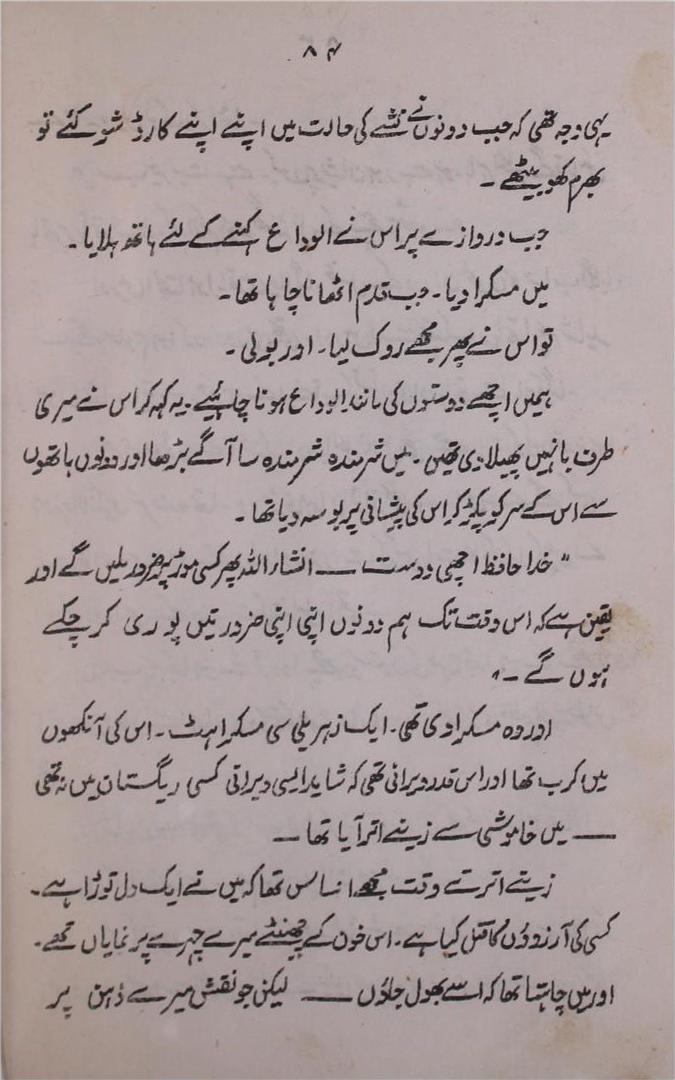 ۸۴
یہی وجہ تھی کہ جب دونوں نے نشے کی حالت میں اپنے اپنے کارڈ شو کئے تو
بھرم کھو بیٹھے ۔
جب دروازے پر اس نے الوداع کہنے کے لئے ہاتھ ہلایا ۔
میں مسکرا دیا ۔ جب قدم اٹھانا چاہا تھا ۔
تو اس نے پھر مجھے روک لیا ۔ اور بولی ۔
ہمیں اچھے دوستوں کی مانند الوداع ہونا چاہئیے ۔ یہ کہہ کر اس نے میری
طرف بانہیں پھیلا دی تھیں ۔ میں شرمندہ شرمندہ سا آگے بڑھا اور دونوں ہاتھوں
سے اس کے سر کو پکڑ کر اس کی پیشانی پر بوسہ دیا تھا ۔
" خدا حافظ اچھی دوست ــــ انشاء اللہ پھر کسی موڑ پر ضرور ملیں گے اور
یقین ہے کہ اس وقت تک ہم دونوں اپنی اپنی ضرورتیں پوری کر چکے
ہوں گے ۔ "
اور وہ مسکرا دی تھی ۔ ایک زہریلی سی مسکراہٹ ۔ اس کی آنکھوں
میں کرب تھا اور اس قدر ویرانی تھی کہ شاید ایسی ویرانی کسی ریگستان میں نہ تھی
ــــ میں خاموشی سے زینے اتر آیا تھا ــــ
زینے اترتے وقت مجھے احساس تھا کہ میں نے ایک دل توڑا ہے ۔
کسی کی آرزوؤں کا قتل کیا ہے ۔ اس خون کے چھینٹے میرے چہرے پر نمایاں تھے ۔
اور میں چاہتا تھا کہ اسے بھول جاؤں ــــ لیکن جو نقش میرے ذہن پر